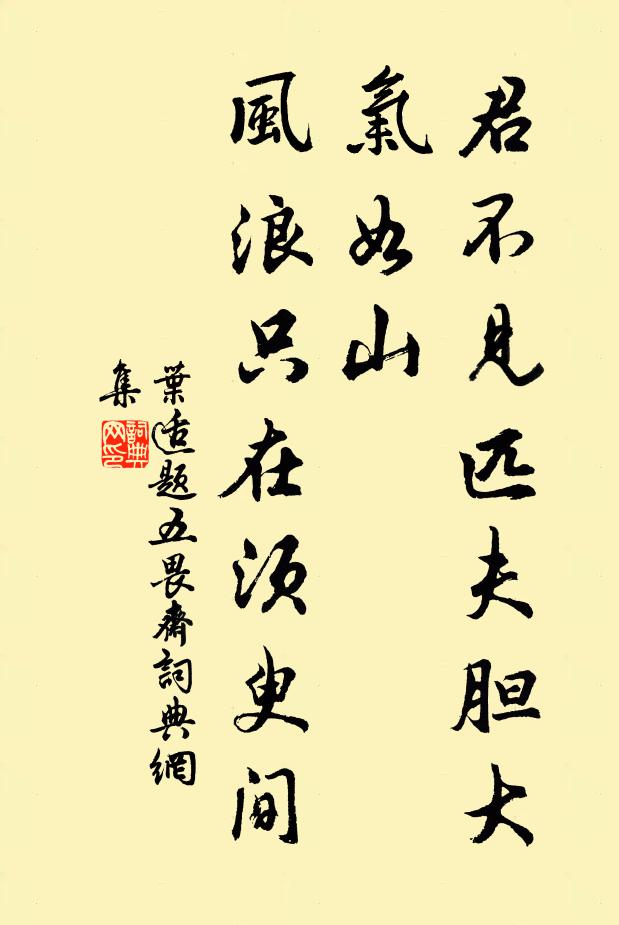 君不見匹夫胆大
氣如山
風浪只在須臾間
葉适題五畏齋詞典網
集
詞典
网印